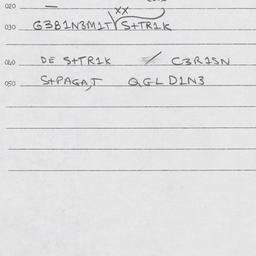 020
XX
030 G3B1N3M1TY S+TR1K
040 DE S+TR1K / C3R1SN
050 S+PAGA,T QGL D1N3